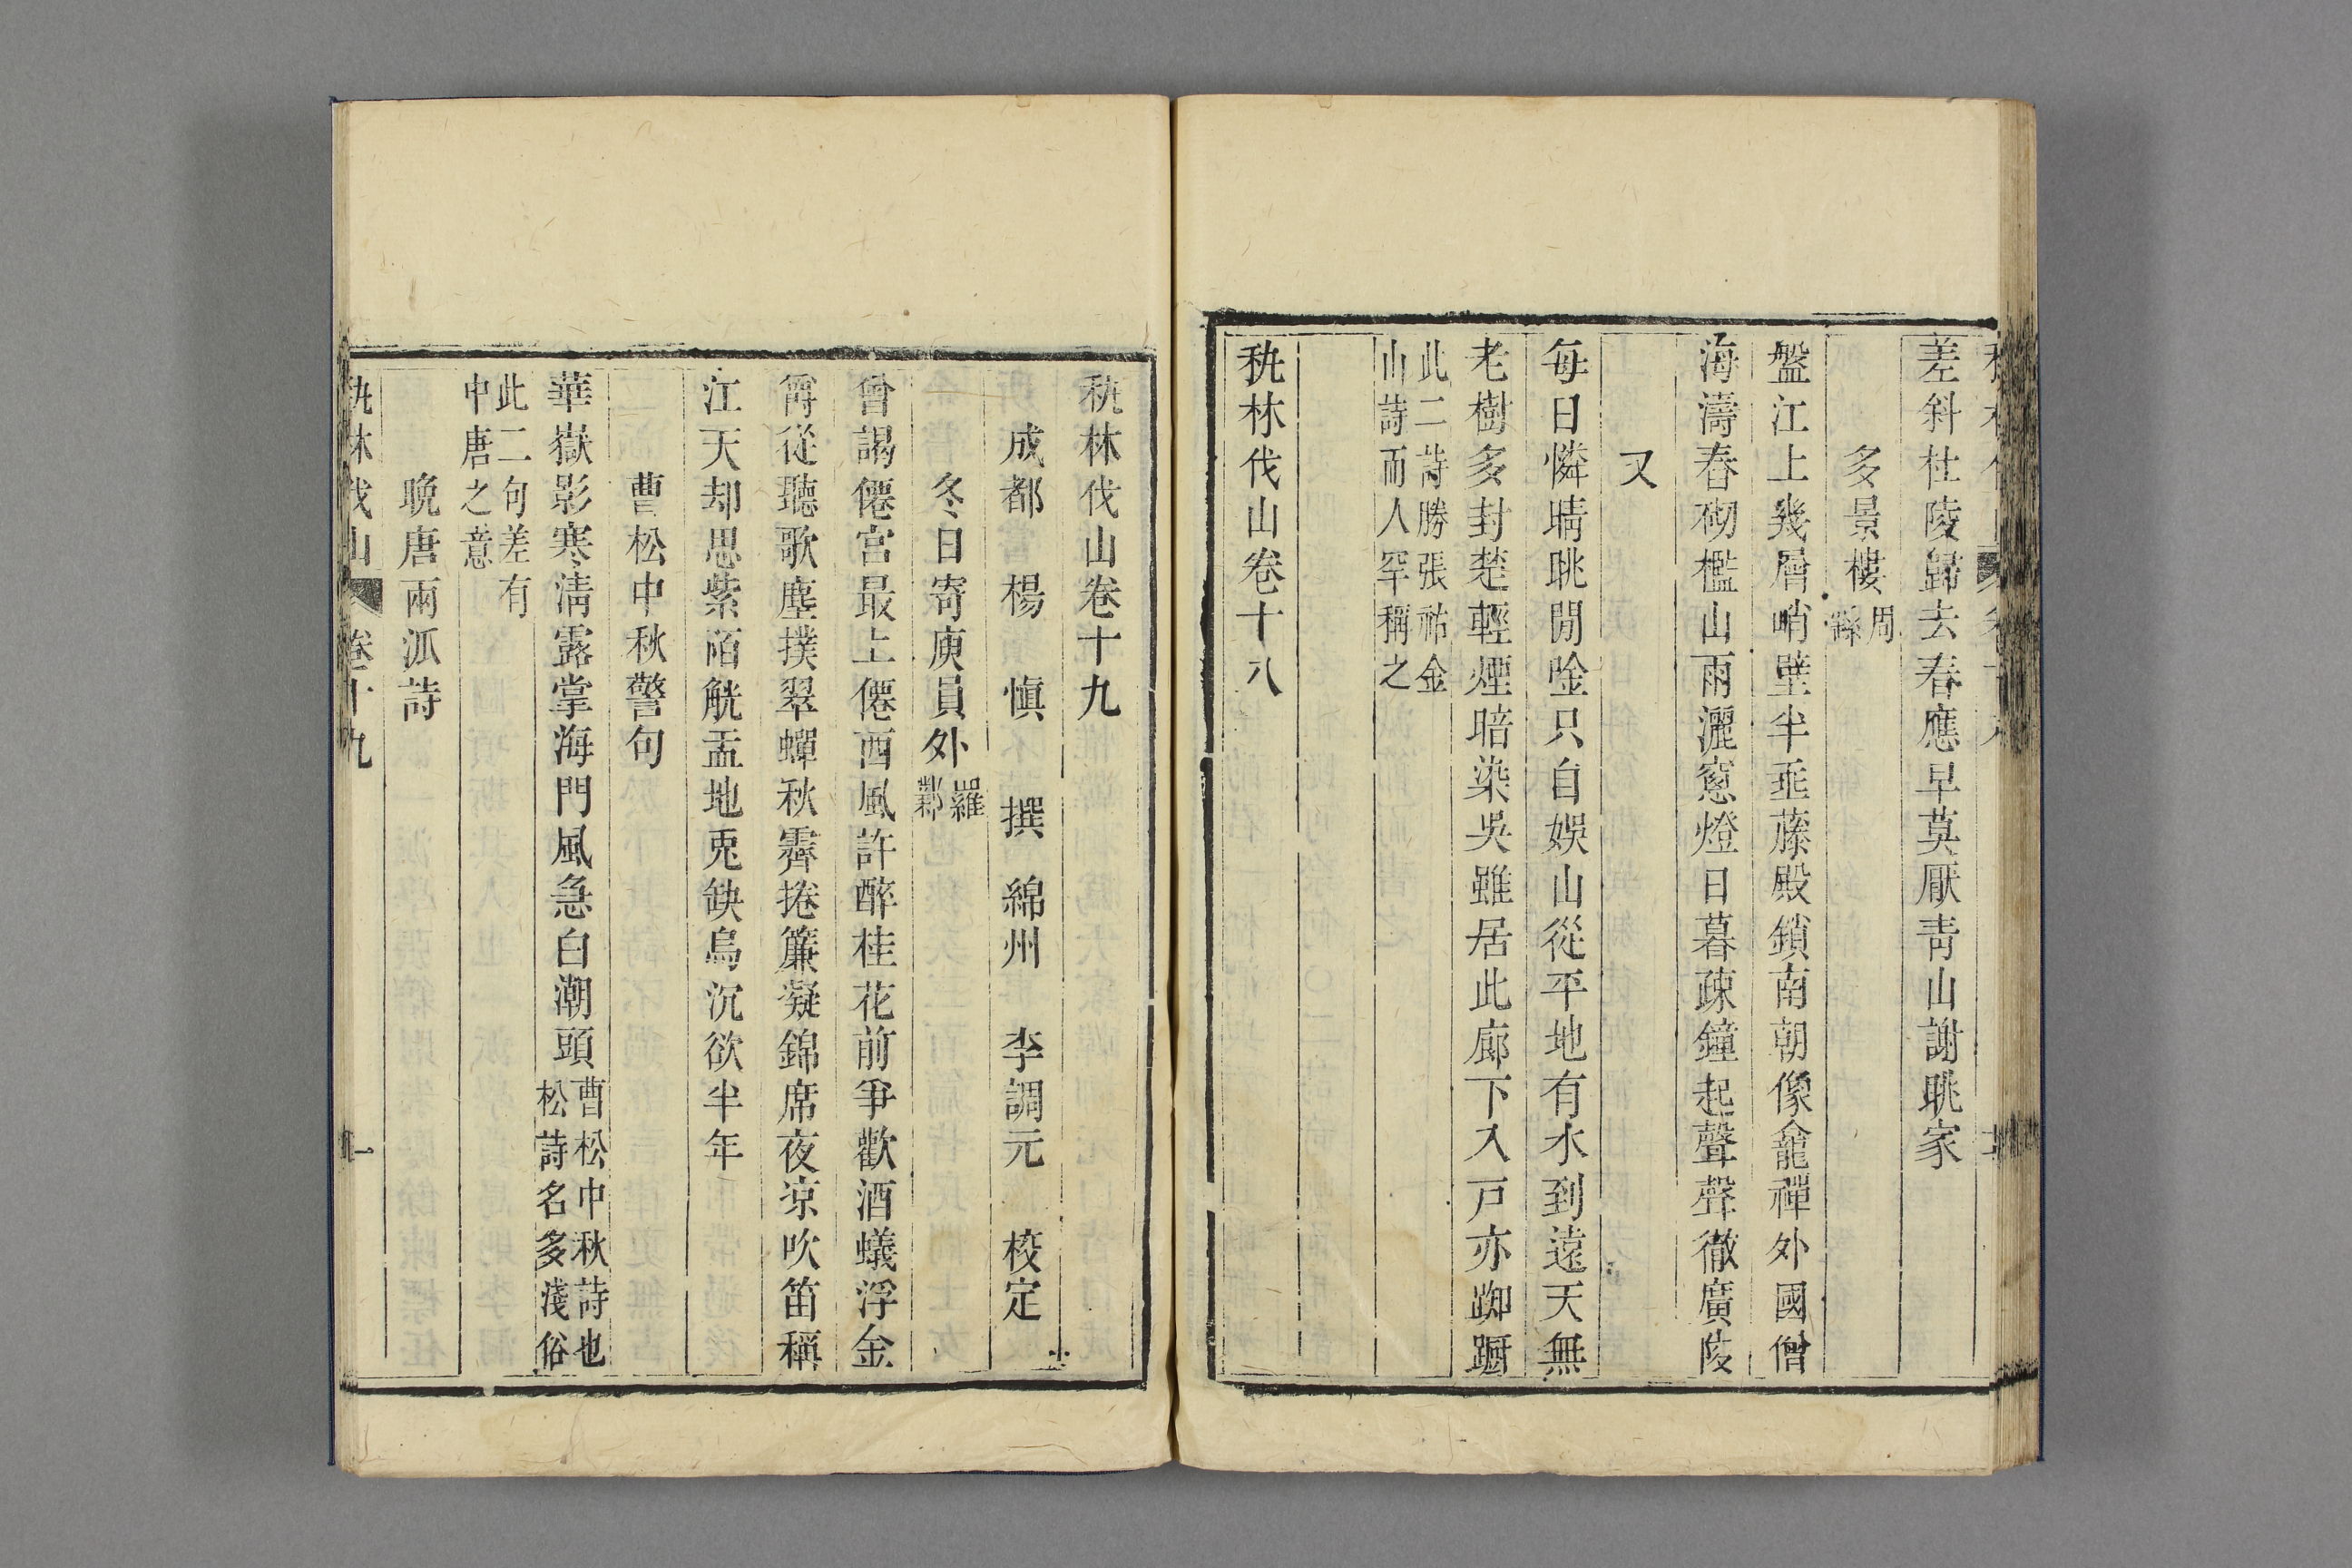 差斜杜陵歸去春應早莫厭靑山謝眺家
多景樓周繇
盤江上幾層峭壁半垂藤殿鎖南朝像龕禪外國僧
海濤舂砌檻山雨灑窻燈日暮疎鐘起聲聲徹廣陵
又
每日憐晴眺閒唫只自娛山從平地有水到遠天無
老樹多封楚輕煙暗染吳雖居此廊下入戸亦踟躕
此二詩勝張祜金
山詩而人罕稱之
秇林伐山卷十八
秇林伐山卷十九
成都 楊 愼 撰 綿州 李調元 校定
冬日寄庾員外羅鄴
曾謁僊宮最上僊西風許醉桂花前爭歡酒蟻浮金
甯從聽歌塵撲翠蟬秋霽捲簾凝錦席夜凉吹笛稱
江天却思紫陌觥盂地兎缺烏沉欲半年
曹松中秋警句
華嶽影寒淸露掌海門風急白潮頭曹松中秋詩也
松詩名多淺俗
此二句差有
中唐之意
晩唐兩派詩
秇林伐山 卷十九 一